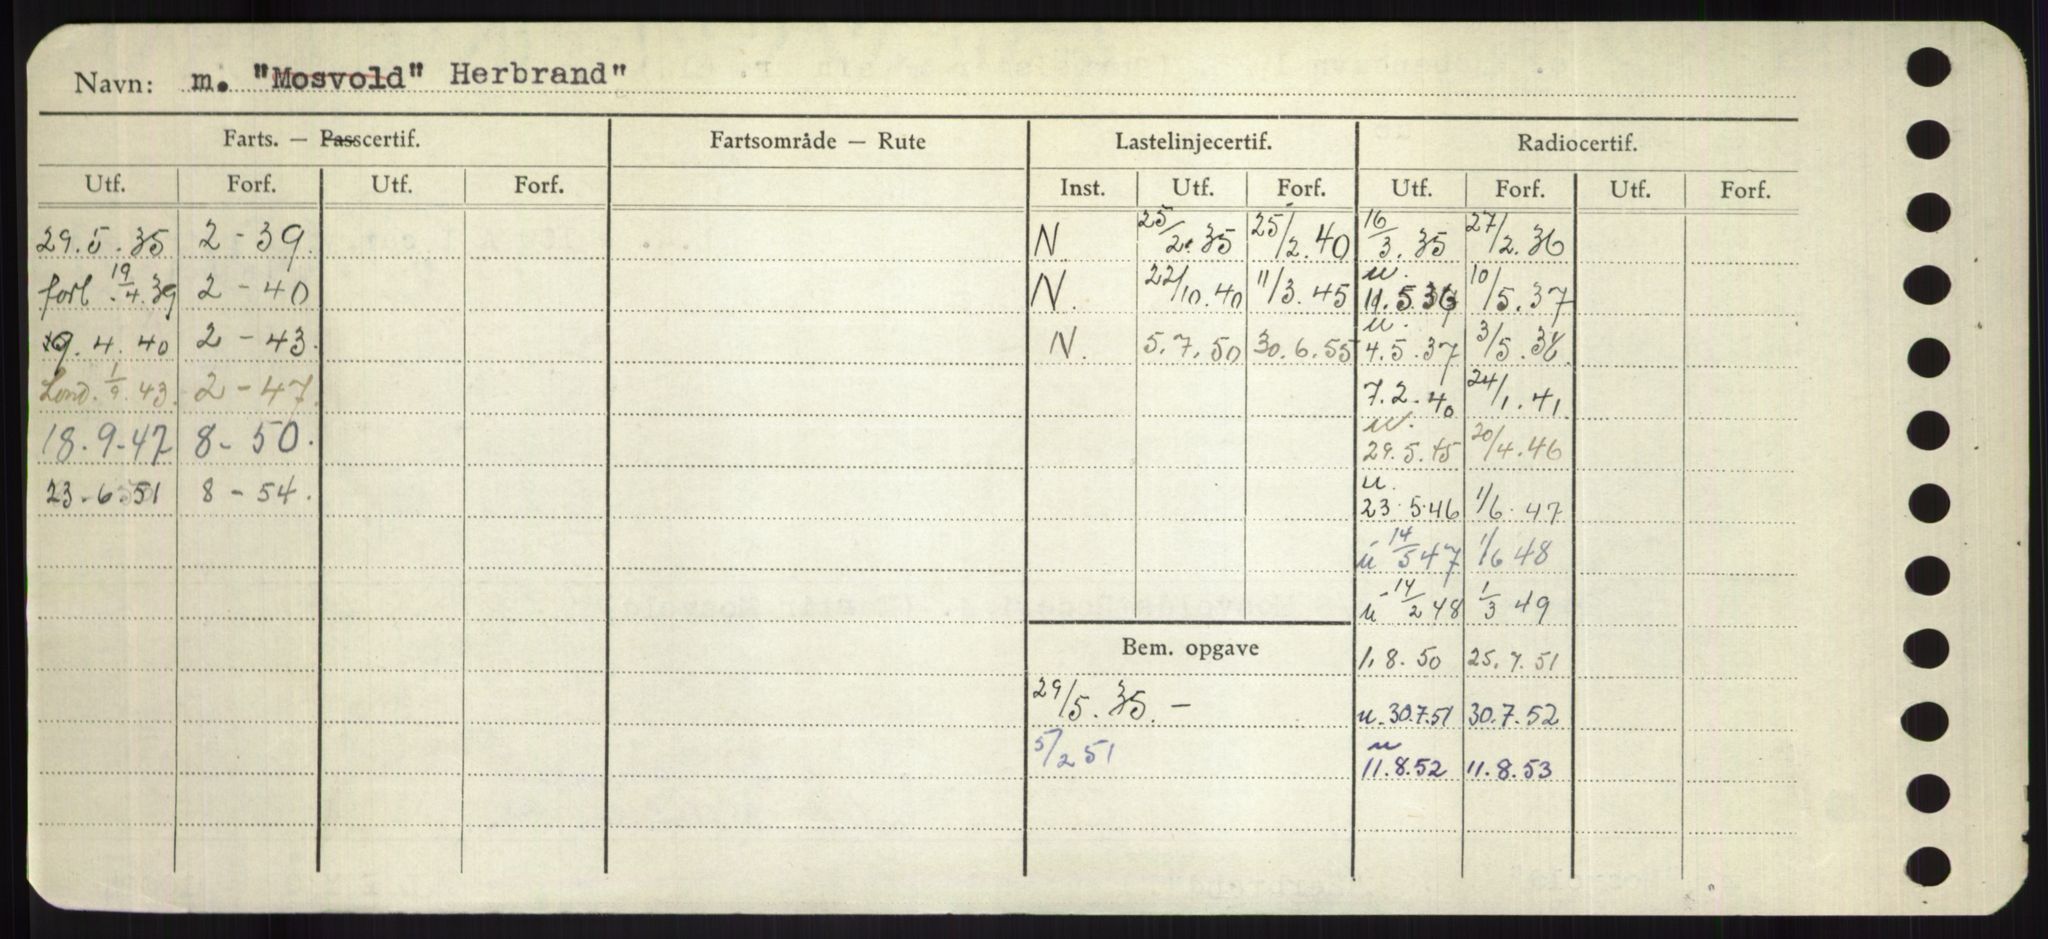 Navn: m. "Mosvold" Herbrand"
Farts. — Passcertif. Fartsområde — Rute Lastelinjecertif. Radiocertif.
Utf. Forf. Utf. Forf. Inst. Utf. Forf. Utf. Forf. Utf. Forf.
29.5.35 2-39. N. 25/2.35 25/2.40 16/3.35 27/2.36
forl. 19/4.39 2-40 N. 22/10.40 11/3.45 u. 11.5.36 10/5.37
9.4.40 2-43. N. 5.7.50 30.6.55 u. 4.5.37 3/5.38.
Lond. 1/9.43. 2-47. 7.2.40 24/1.41.
18.9-47 8-50. u. 29.5.45 20/4.46
23.6.51 8-54. u. 23.5.46 1/6.47
u 14/5 47 1/6 48
u 14/2 48 1/3 49
Bem. opgave 1.8.50 25.7.51
29/5.35.- u. 30.7.51 30.7.52
5/2 51 u 11.8.52 11.8.53